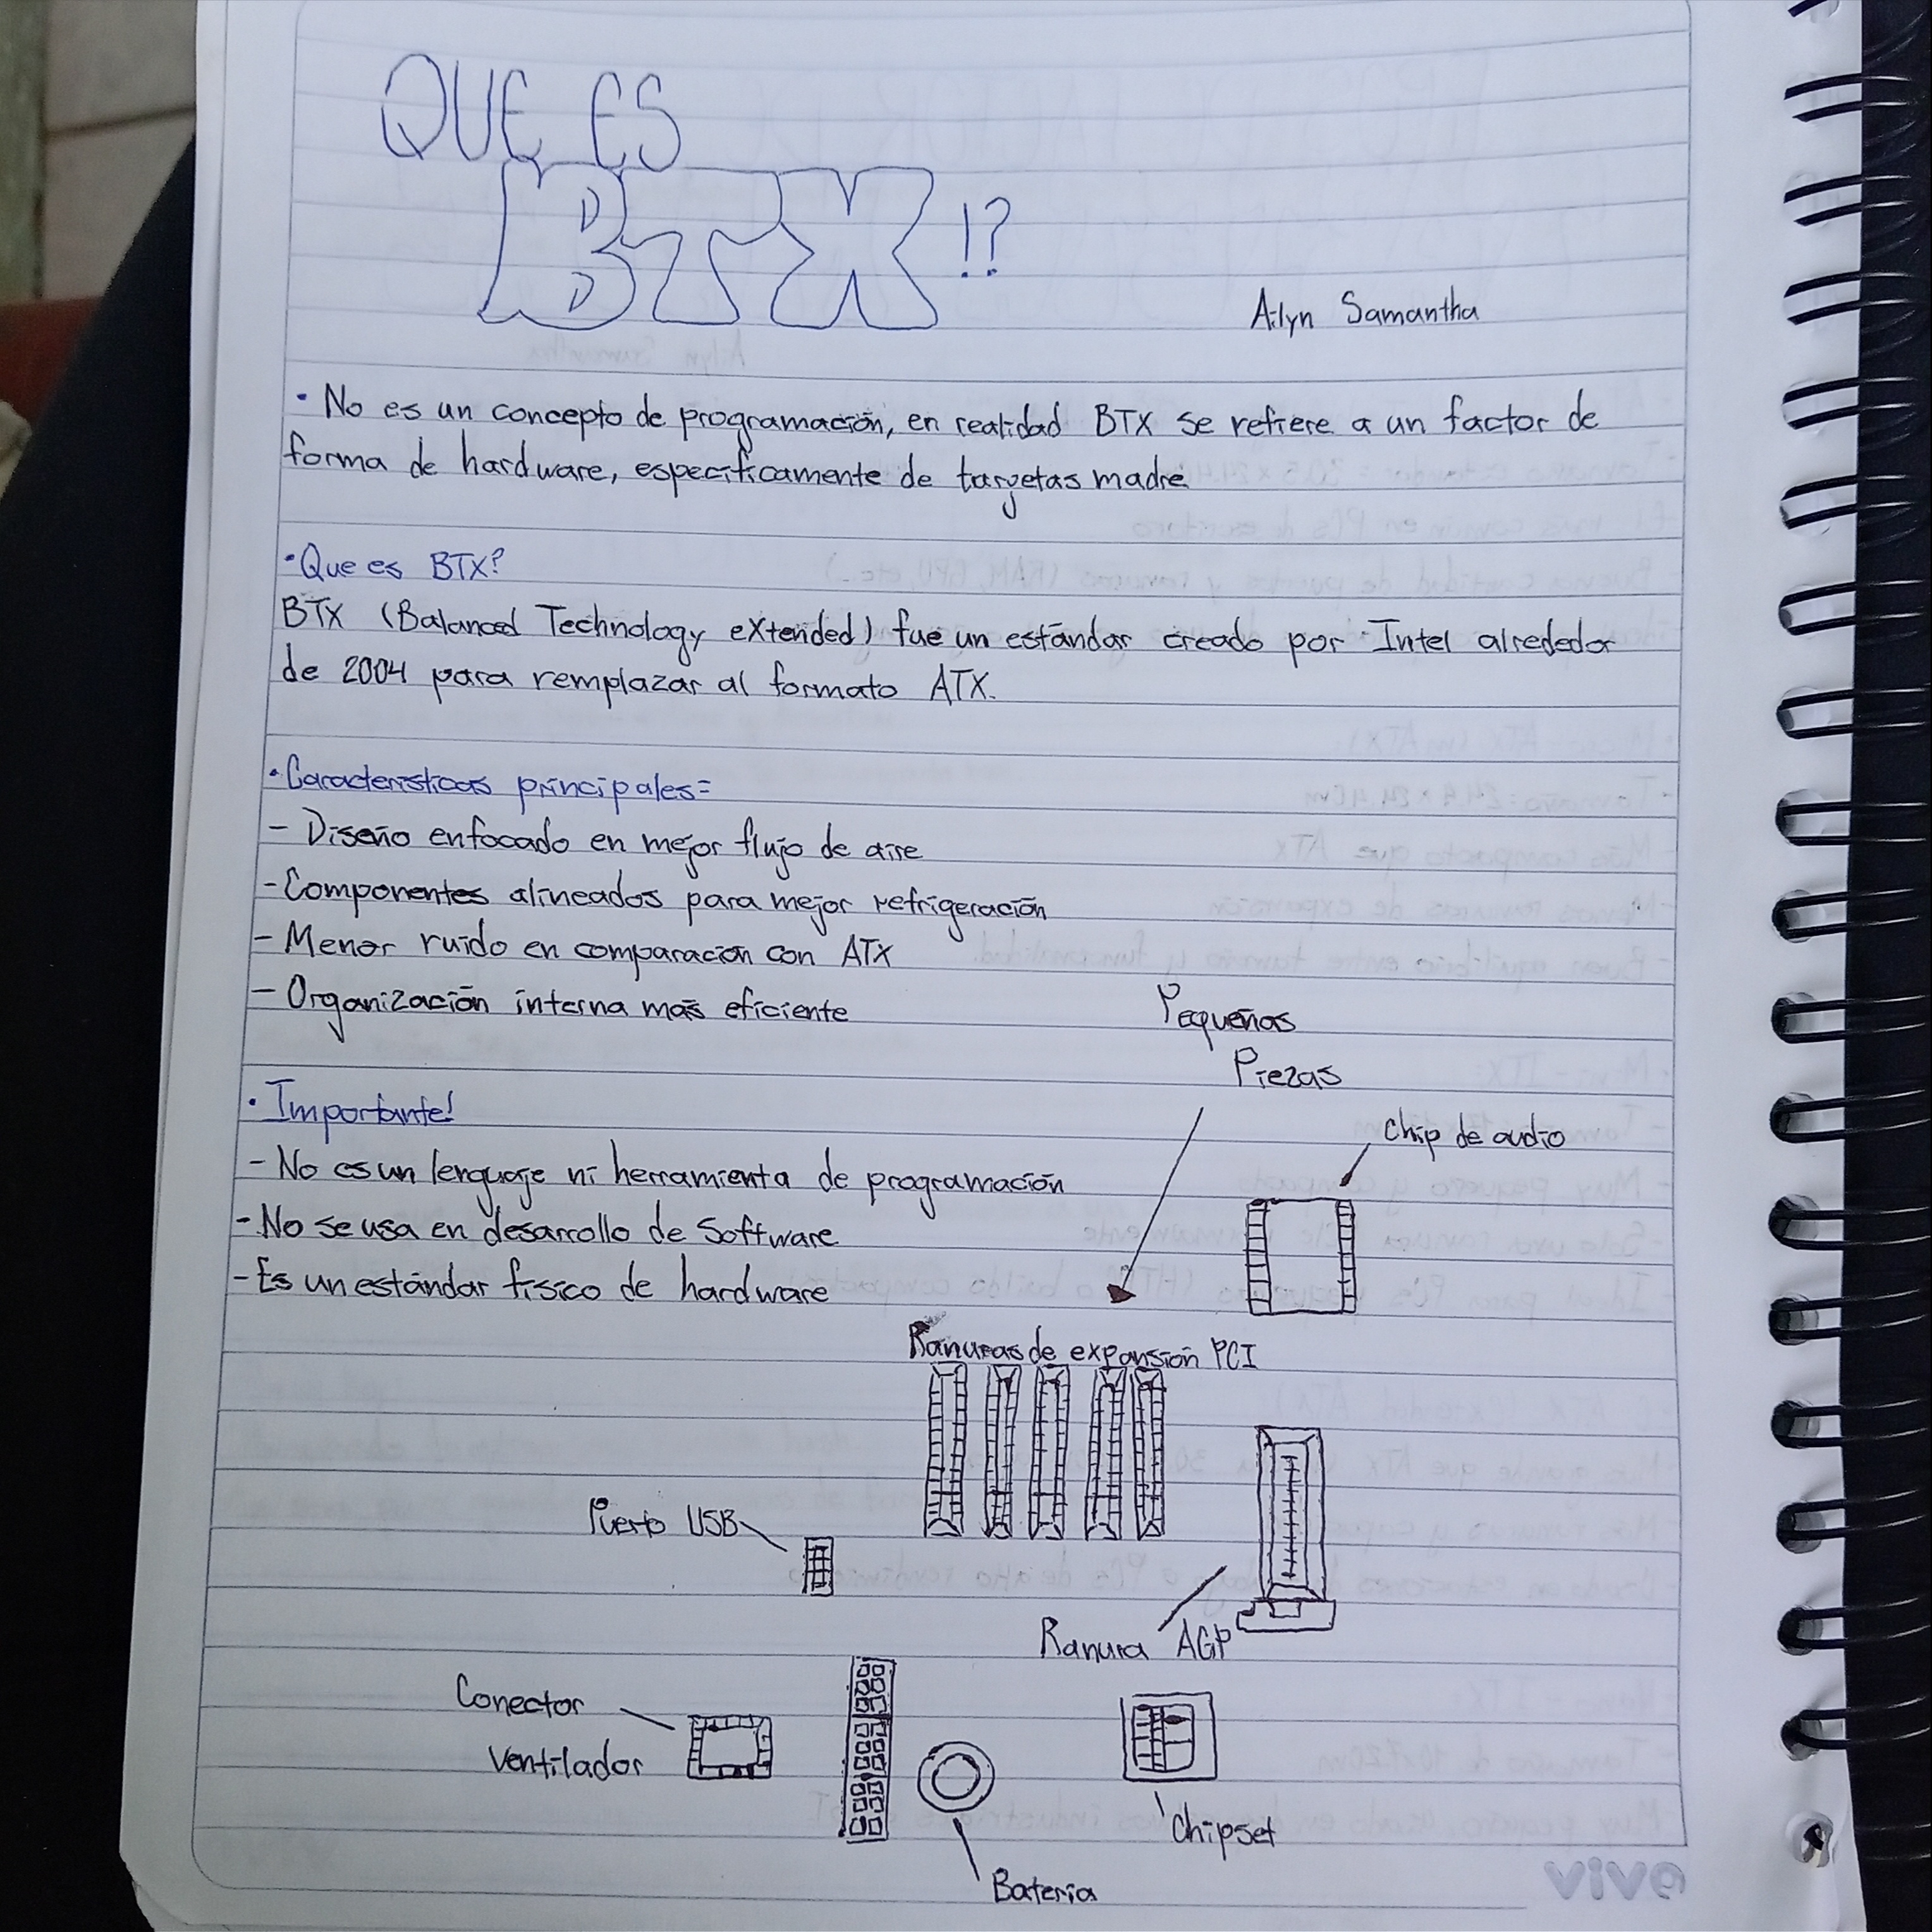 QUE ES
BTX!?
Ailyn Samantha
• No es un concepto de programación, en realidad BTX se refiere a un factor de
forma de hardware, específicamente de targetas madre
• Que es BTX?
BTX (Balanced Technology eXtended) fue un estándar creado por Intel alrededor
de 2004 para remplazar al formato ATX.
• Características principales=
- Diseño enfocado en mejor flujo de aire
- Componentes alineados para mejor refrigeración
- Menor ruido en comparación con ATX
- Organización interna más eficiente
Pequeñas
Piezas
• Importante!
chip de audio
- No es un lenguaje ni herramienta de programación
- No se usa en desarrollo de Software
- Es un estándar físico de hardware
Ranuras de expansión PCI
Puerto USB
Ranura AGP
Conector
ventilador
chipset
Bateria
viva